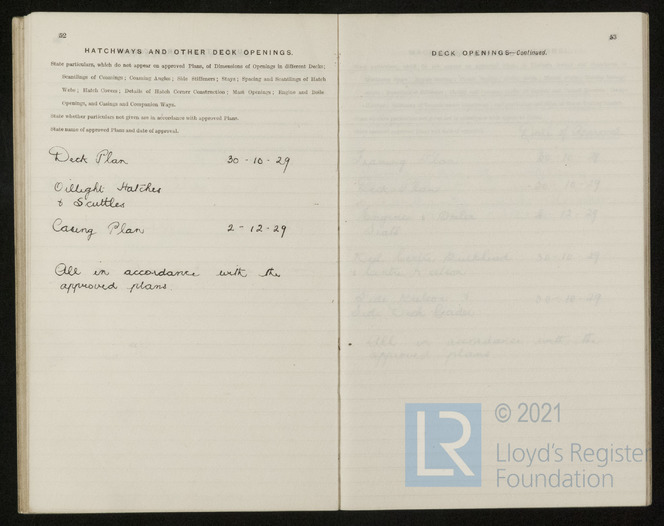 52
HATCHWAYS AND OTHER DECK OPENINGS.
State particulars, which do not appear on approved Plans, of Dimensions of Openings in different Decks;
Scantlings of Coamings; Coaming Angles; Side Stiffeners; Stays; Spacing and Scantlings of Hatch
Webs; Hatch Covers; Details of Hatch Corner Construction; Mast Openings; Engine and Boiler
Openings, and Casings and Companion Ways.
State whether particulars not given are in accordance with approved Plans.
State name of approved Plans and date of approval.
Deck Plan 30-10-29
Oiltight Hatches
& Scuttles
Casing Plan 2-12-29
All in accordance with the
approved plans
53
DECK OPENINGS—Continued.
LR
© 2021
Lloyd's Register
Foundation